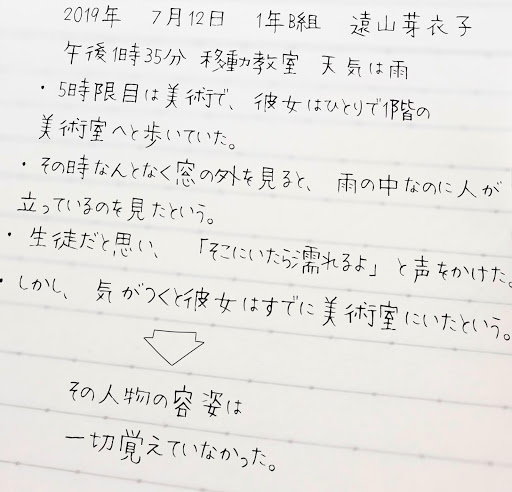 2019年 7月12日 1年B組 遠山芽衣子
午後1時35分 移動教室 天気は雨
・5時限目は美術で、彼女はひとりで1階の
美術室へと歩いていた。
・その時なんとなく窓の外を見ると、雨の中なのに人が
立っているのを見たという。
・生徒だと思い、「そこにいたら濡れるよ」と声をかけた。
・しかし、気がつくと彼女はすでに美術室にいたという。
その人物の容姿は
一切覚えていなかった。